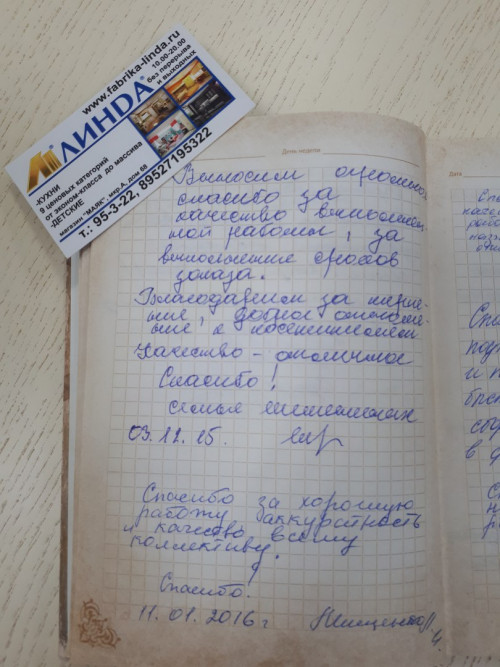 www.fabrika-linda.ru
10.00-20.00
без перерыва
и выходных
ЛИНДА®
-КУХНИ
9 ценовых категорий
от эконом-класса до массива
-ДЕТСКИЕ
магазин "МАЯК", мкр.А, дом 58
т.: 95-3-22, 89527195322
День недели
Выносим огромное
спасибо за
качество выполнен
ной работы, за
выполнение сроков
заказа.
Благодарим за
доброе отноше-
ние к посетителям
Качество - отличное
Спасибо!
семья
03.12.15.
Спасибо за хорошую
работу аккуратность
и качество всему
коллективу!
Спасибо!
11.01.2016 г
Дата